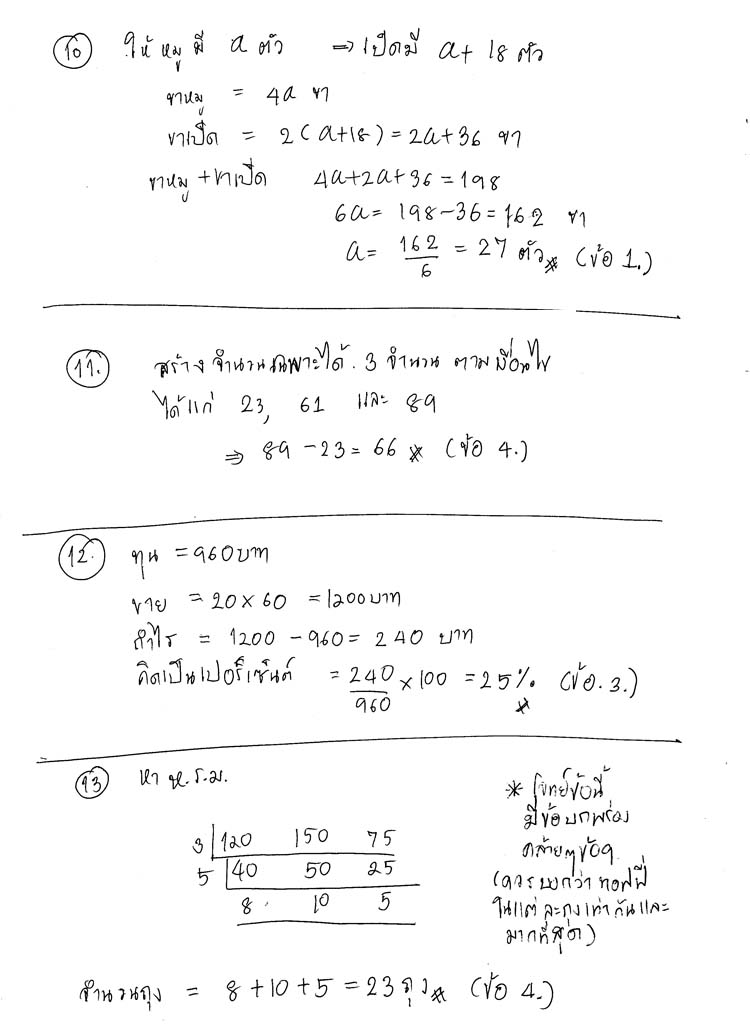 10 ให้หมูมี a ตัว ⇒ เป็ดมี a + 18 ตัว
ขาหมู = 4a ขา
ขาเป็ด = 2(a+18) = 2a+36 ขา
ขาหมู + ขาเป็ด 4a+2a+36 = 198
6a = 198-36 = 162 ขา
a = 162/6 = 27 ตัว* (ข้อ 1.)
11. สร้างจำนวนเฉพาะได้ 3 จำนวน ตามเงื่อนไข
ได้แก่ 23, 61 และ 89
⇒ 89 - 23 = 66 * (ข้อ 4.)
12. ทุน = 960 บาท
ขาย = 20 × 60 = 1200 บาท
กำไร = 1200 - 960 = 240 บาท
คิดเป็นเปอร์เซ็นต์ = 240/960 × 100 = 25% * (ข้อ. 3.)
13 หา ห.ร.ม.
3 120 150 75
5 40 50 25
8 10 5
* โจทย์ข้อนี้
มีข้อบกพร่อง
คล้ายๆข้อ9
(ควรบอกว่า ทอฟฟี่
ในแต่ละถุงเท่ากันและ
มากที่สุด)
จำนวนถุง = 8 + 10 + 5 = 23 ถุง* (ข้อ 4.)